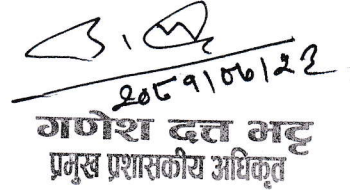 २०८१/०७/२३
गणेश दत्त भट्ट
प्रमुख प्रशासकीय अधिकृत